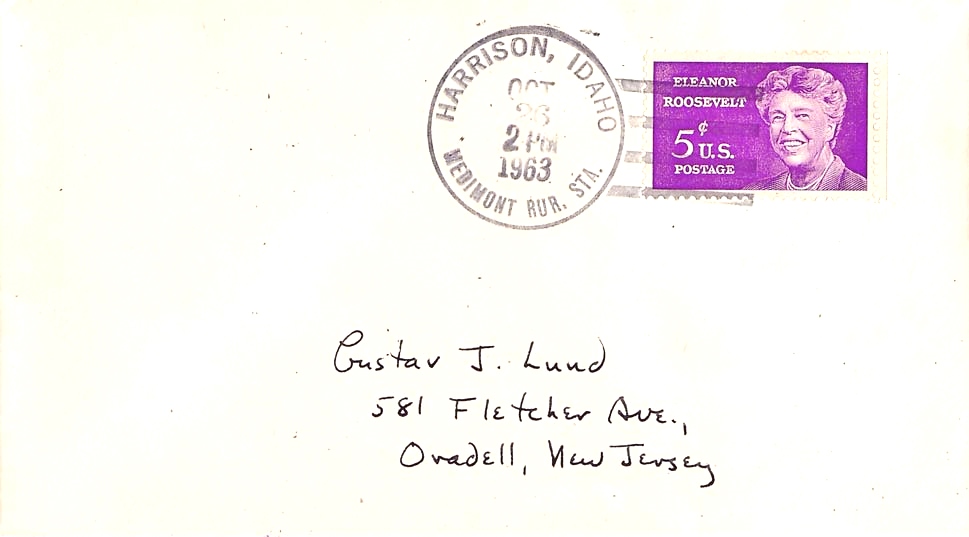 HARRISON, IDAHO
OCT
26
2 PM
1963
MEDIMONT RUR. STA.
ELEANOR
ROOSEVELT
5¢ U.S.
POSTAGE
Gustav J. Lund
581 Fletcher Ave.,
Oradell, New Jersey